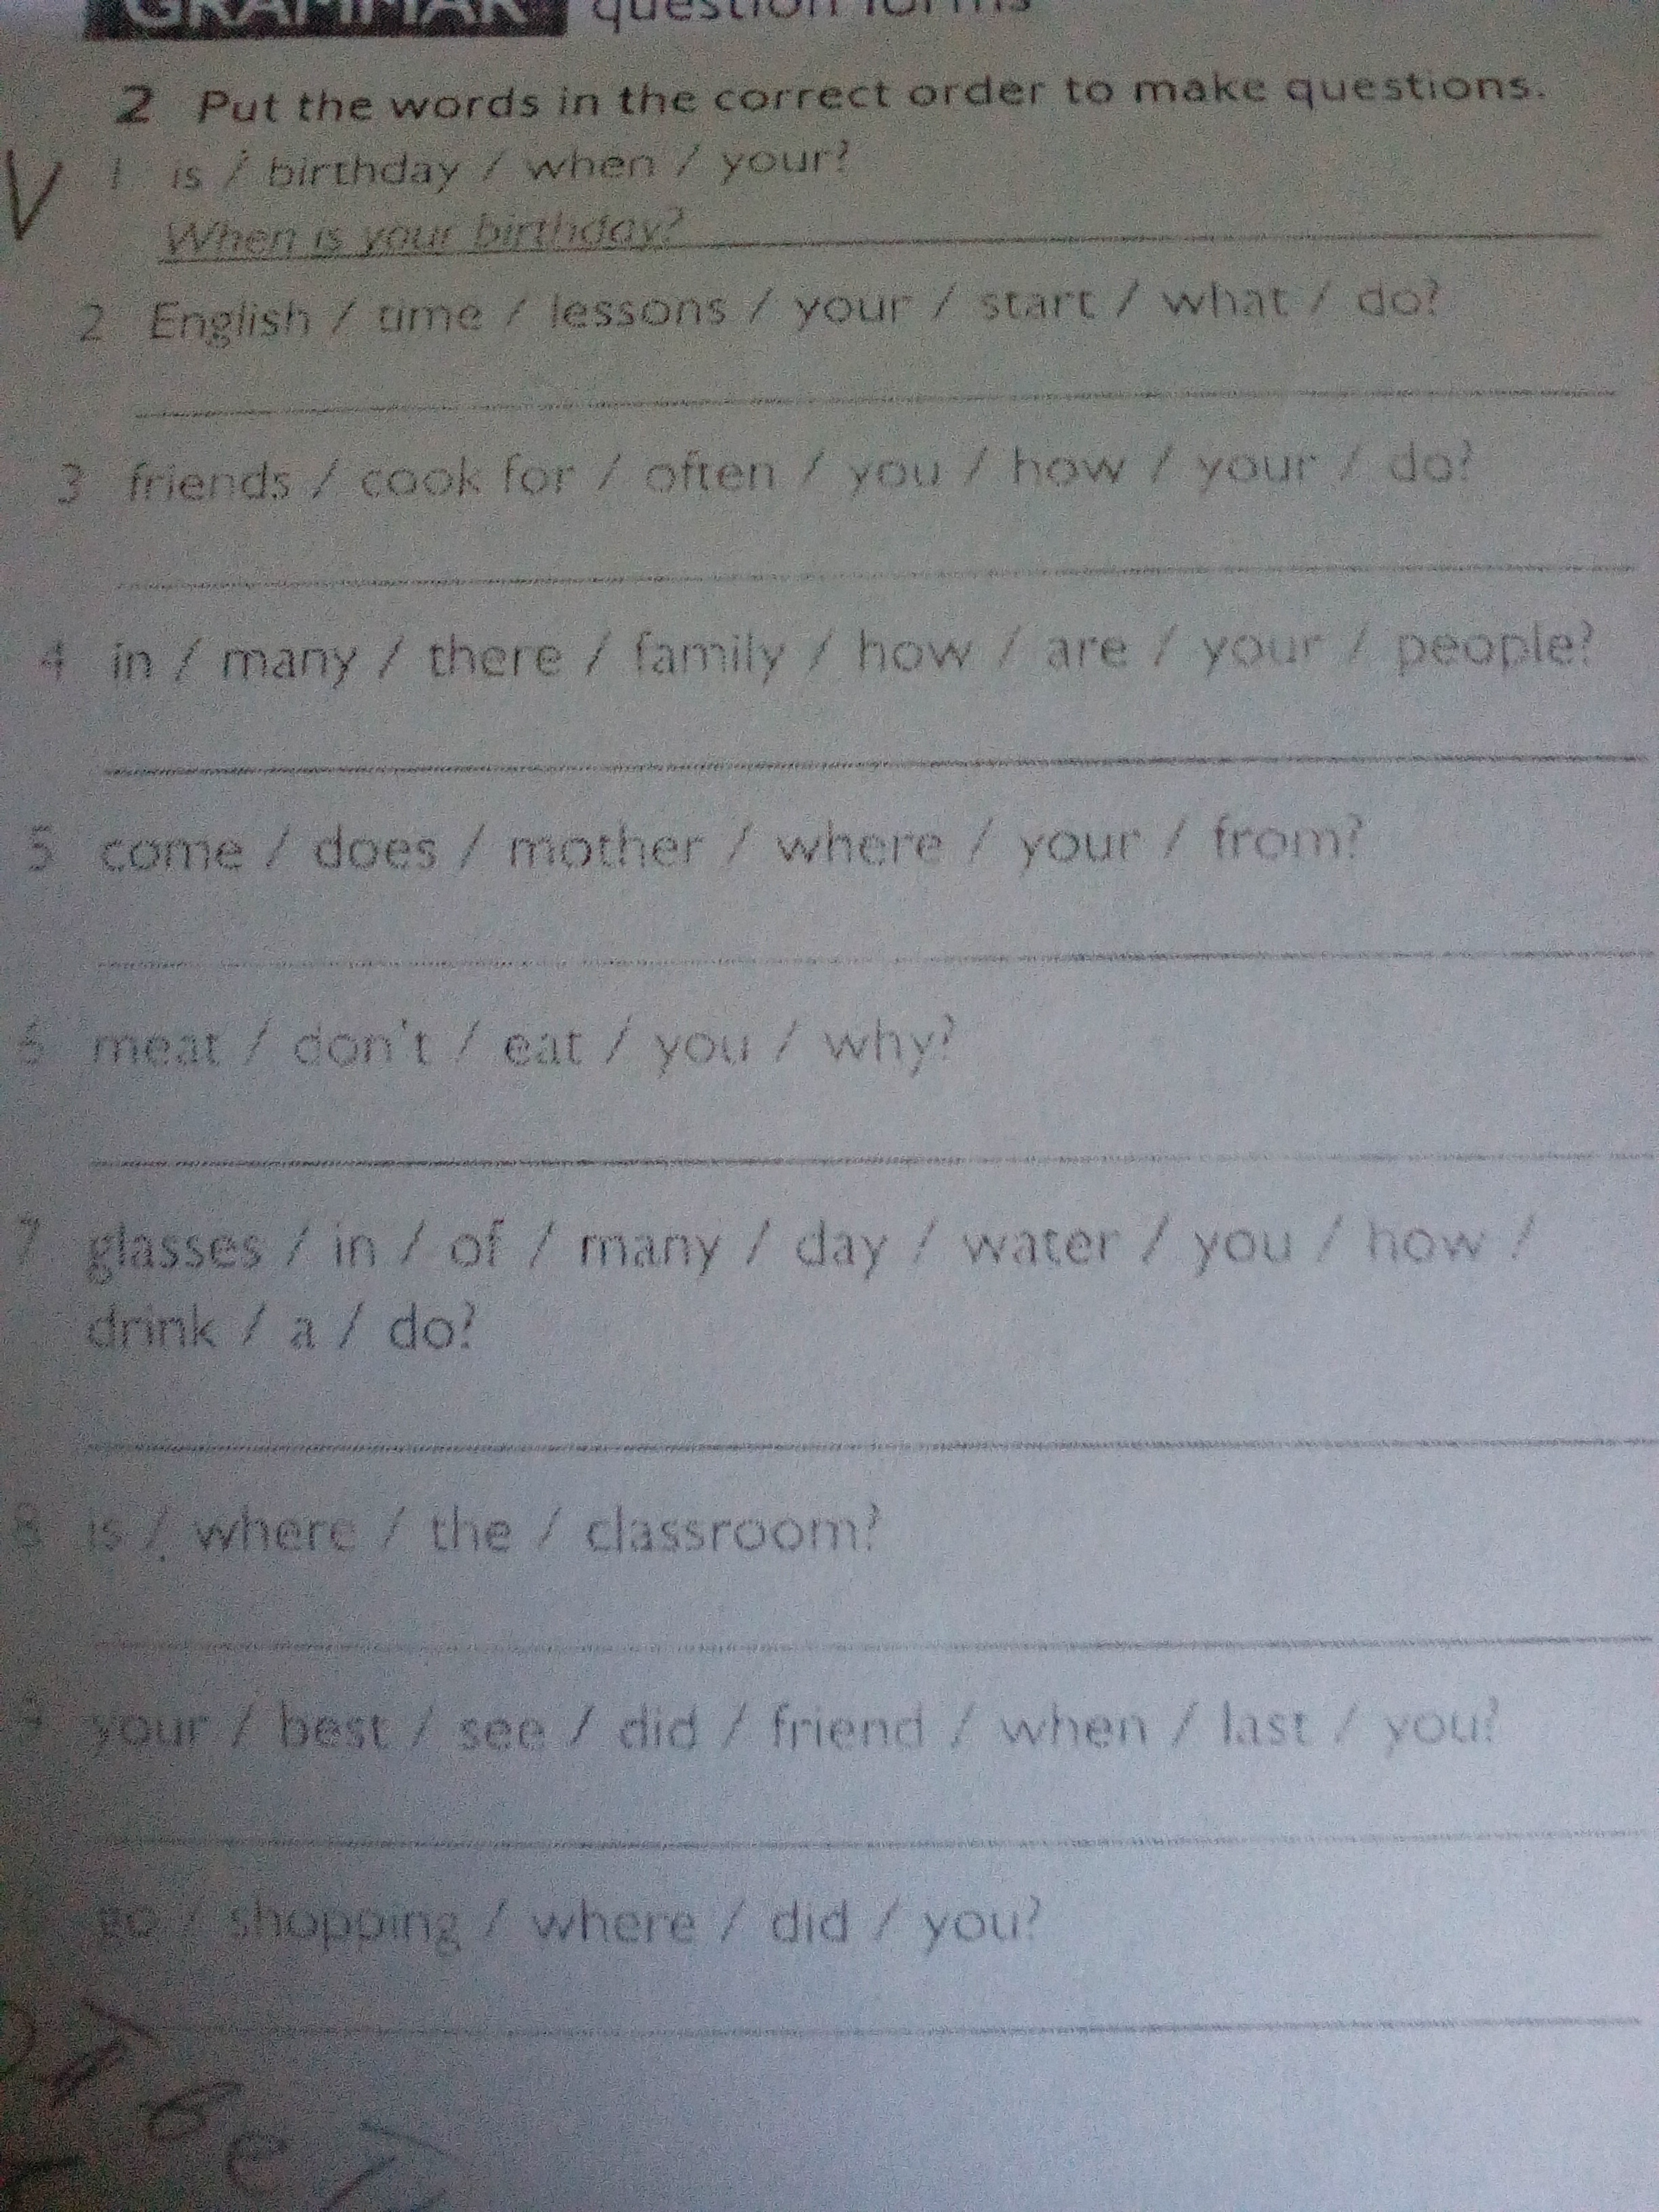 GRAMMAR question forms
2 Put the words in the correct order to make questions.
V 1 is / birthday / when / your?
When is your birthday?
2 English / time / lessons / your / start / what / do?
3 friends / cook for / often / you / how / your / do?
4 in / many / there / family / how / are / your / people?
5 come / does / mother / where / your / from?
6 meat / don't / eat / you / why?
7 glasses / in / of / many / day / water / you / how /
drink / a / do?
8 is / where / the / classroom?
9 your / best / see / did / friend / when / last / you?
go / shopping / where / did / you?